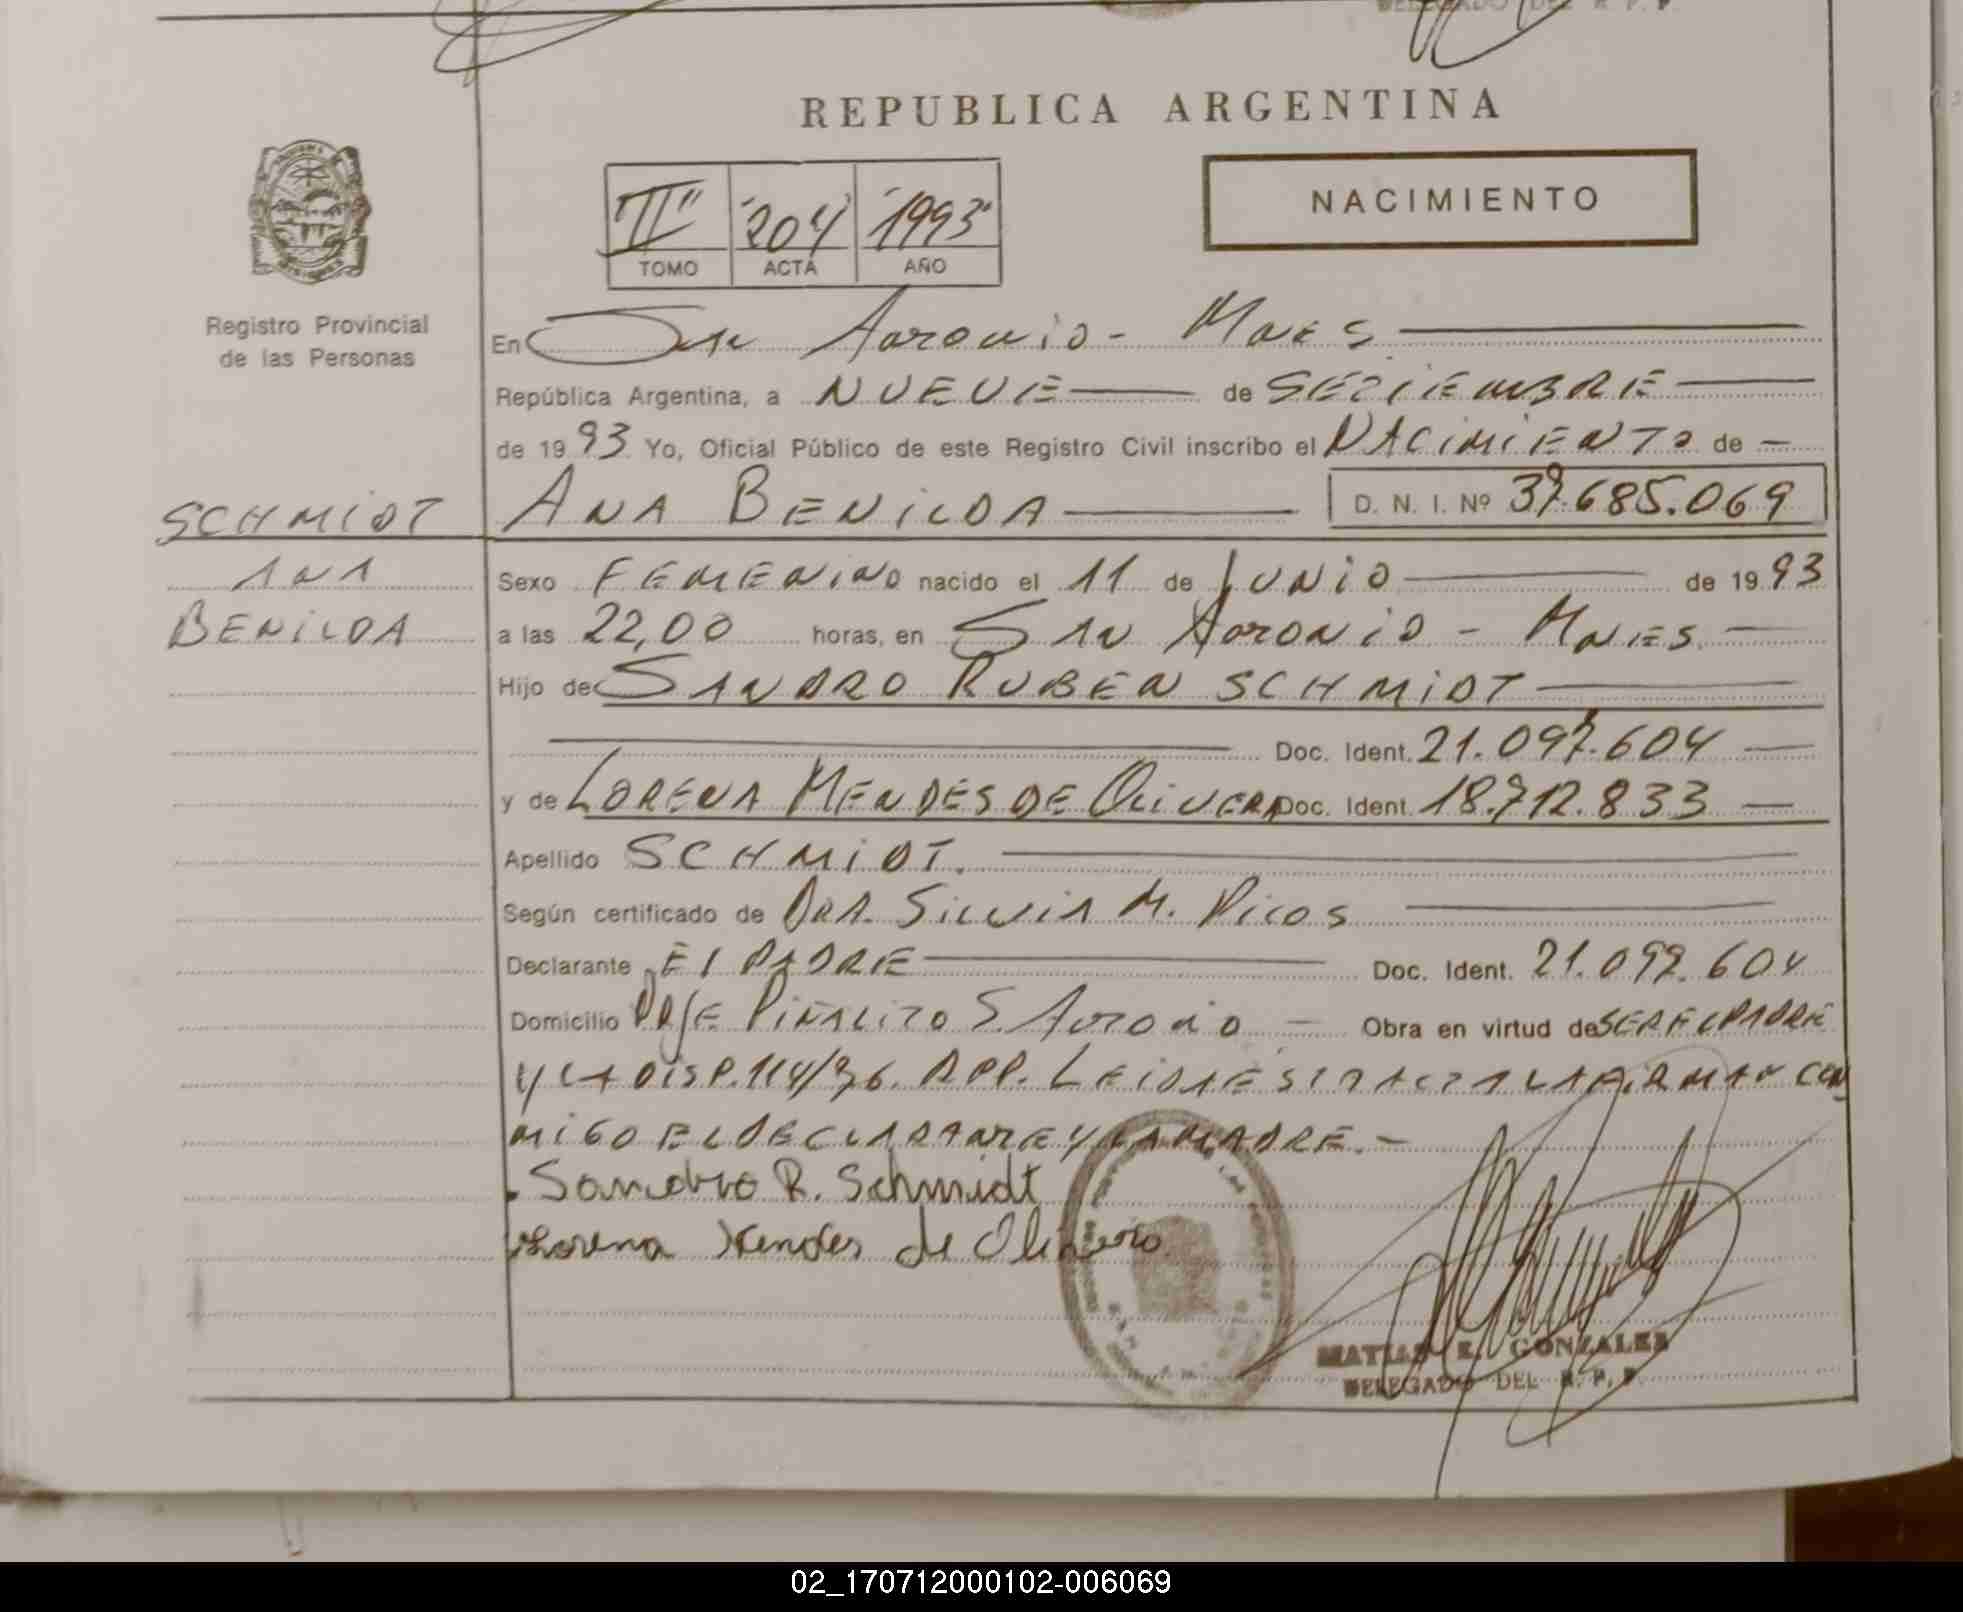 REPUBLICA ARGENTINA
"II" "204" "1993"
TOMO ACTA AÑO
NACIMIENTO
Registro Provincial
de las Personas
En San Antonio - Mnes
República Argentina, a NUEVE de SEPTIEMBRE
de 1993 Yo, Oficial Público de este Registro Civil inscribo el NACIMIENTO de
SCHMIDT ANA BENILDA D. N. I. Nº 37.685.069
ANA Sexo FEMENINO nacido el 11 de JUNIO de 1993
BENILDA a las 22,00 horas, en SAN Antonio - Mnes.
Hijo de SANDRO RUBEN SCHMIDT
Doc. Ident. 21.097.604
y de LORENA MENDES DE OLIVERA Doc. Ident. 18.712.833
Apellido SCHMIDT.
Según certificado de DRA. SILVIA M. Picos
Declarante El PADRE Doc. Ident. 21.097.604
Domicilio PJE PIÑALITO S. Antonio - Obra en virtud de SER EL PADRE
Y LA DISP. 114/36. RPP. LEIDA ESTA ACTA LA FIRMAN CON
MIGO EL DECLARANTE Y LA MADRE.-
Sandro R. Schmidt
Lorena Mendes de Olivera
MATIAS E. GONZALEZ
DELEGADO DEL R. P. P.
02_170712000102-006069